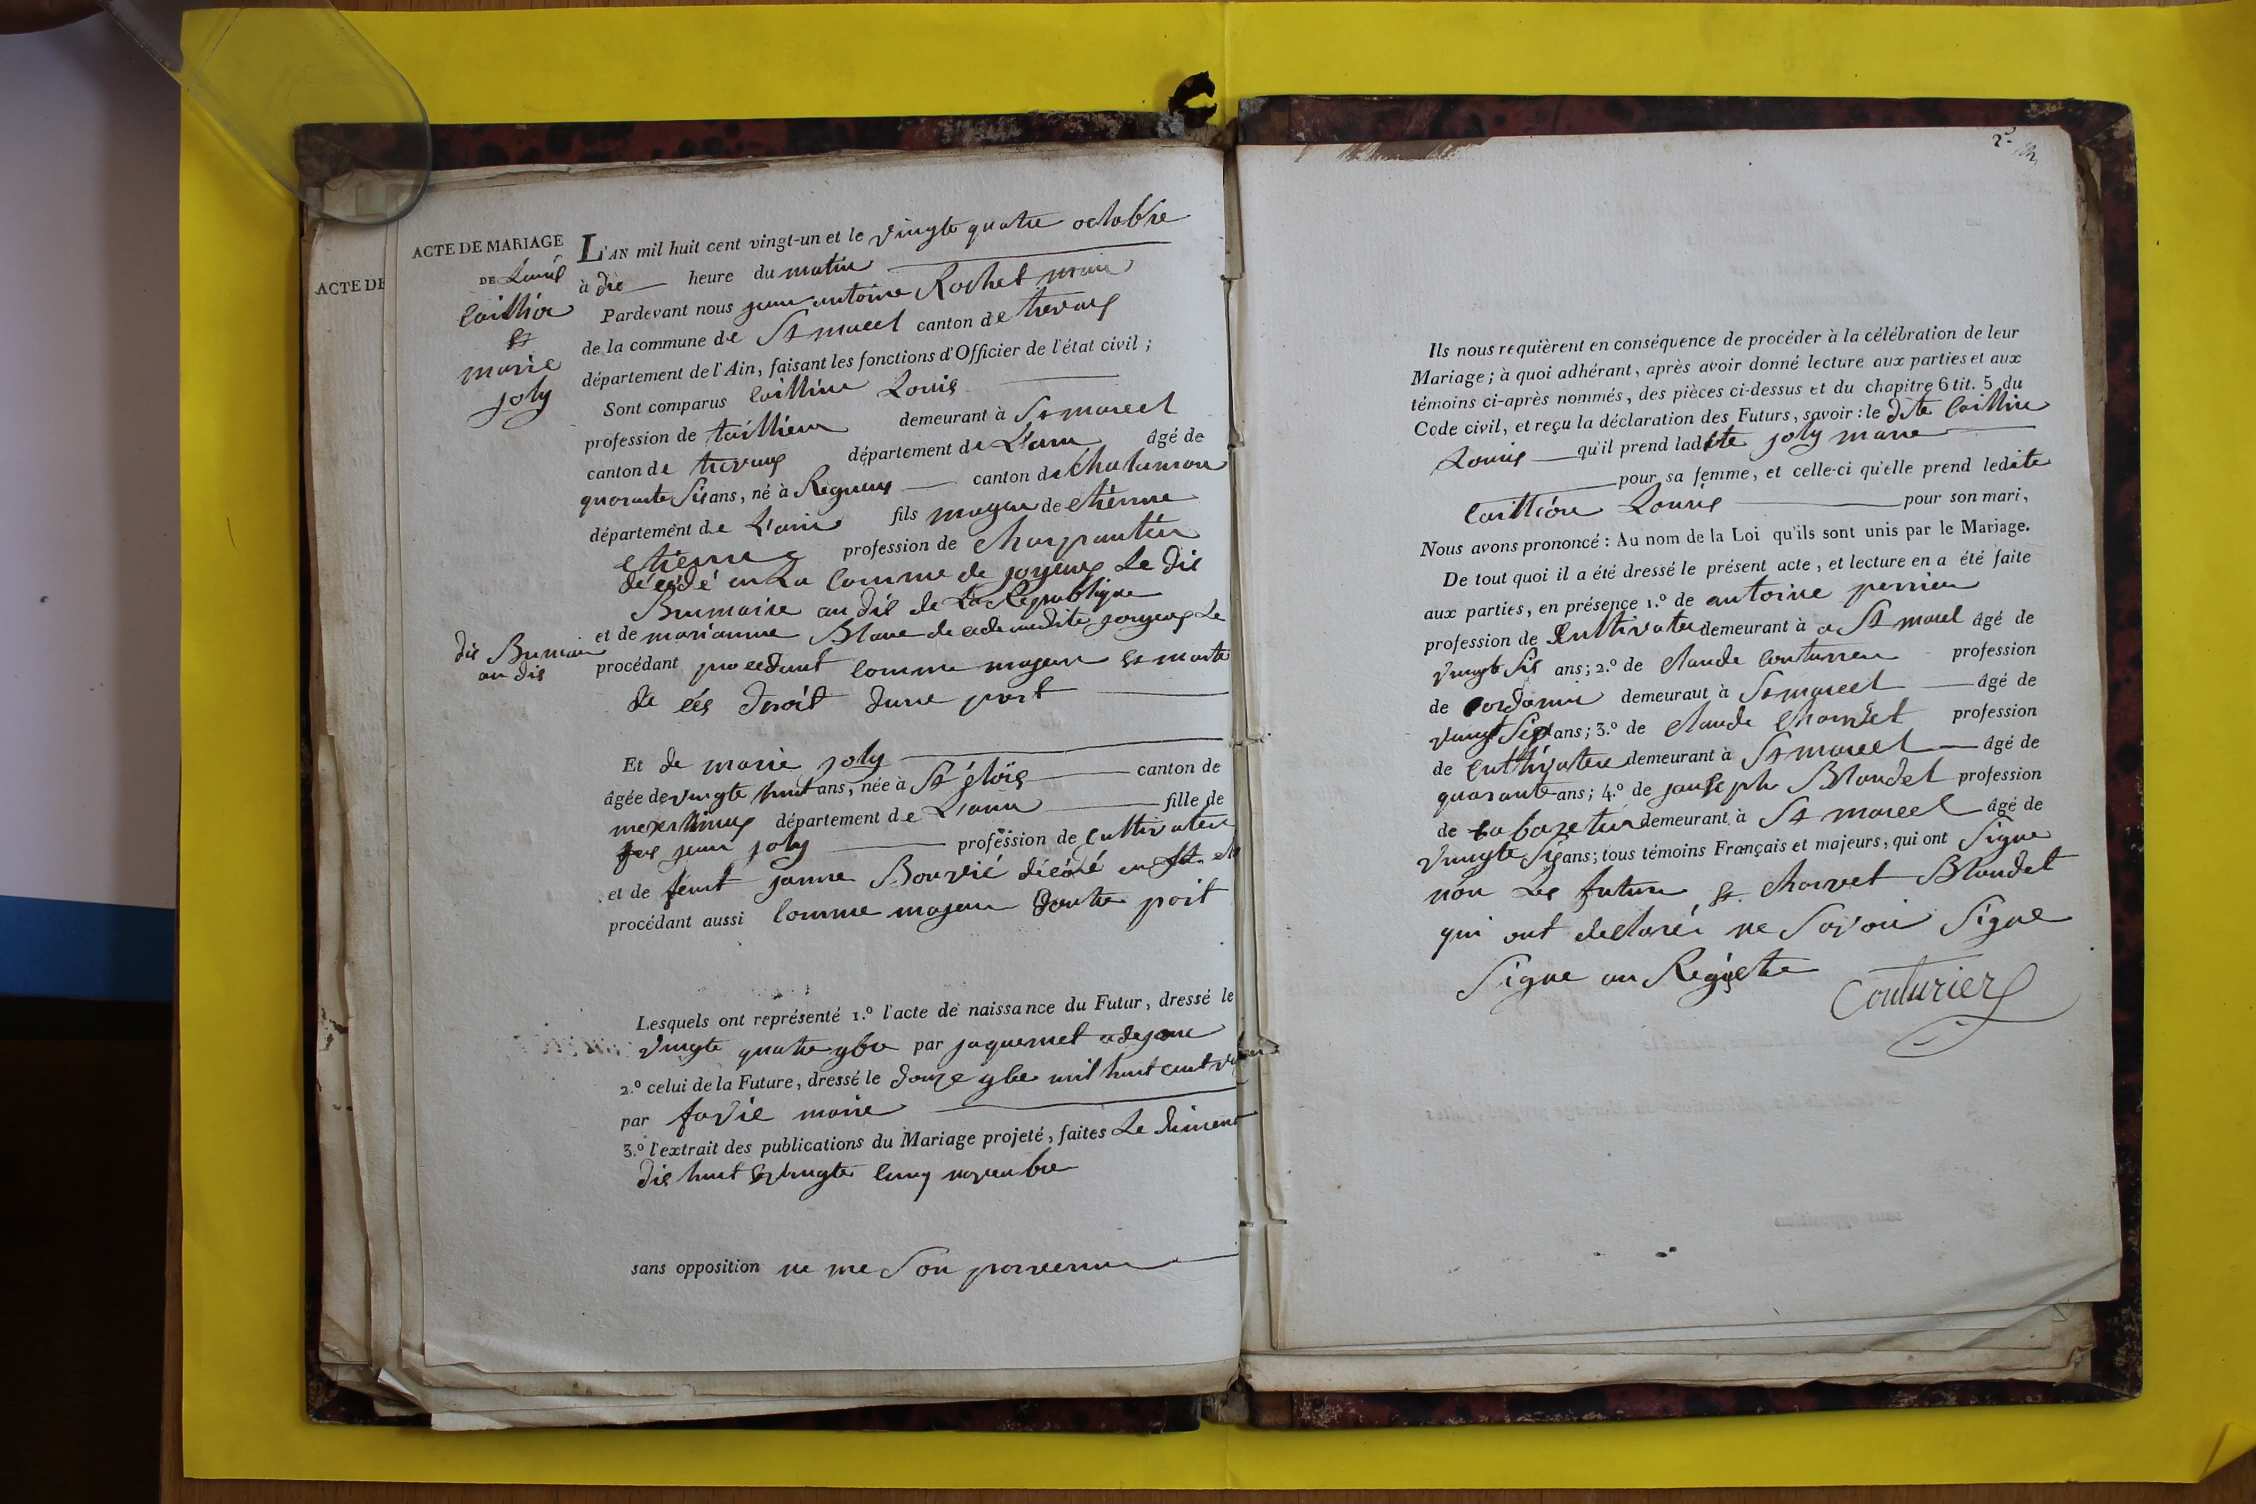 ACTE DE
ACTE DE MARIAGE
DE Louis
Caillion
et
marie
joly
L'AN mil huit cent vingt-un et le vingte quatre octobre
à dix heure du matin
Pardevant nous jean antoine Rochet maire
de la commune de St marcel canton de trevoux
département de l'Ain, faisant les fonctions d'Officier de l'état civil ;
Sont comparus Louis
profession de taillieur demeurant à St marcel
canton de trevoux département de L'ain âgé de
quarante six ans, né à Rigneux canton de Chalamon
département de L'ain fils mageur de etienne
etienne profession de charpantier
décédé en La comme de joyeux Le dix
Brumaire an dix de La Republique
et de marianne Blanc Joyeux Le
dix Brumair
an dix
procédant procedant comme majeur et maitre
de ces droit dune part
Et de marie joly
âgée de vingte huit ans, née à St éloïs canton de
meximieux département de L'ain fille de
jean joly profession de cultivateur
et de feut janne Bouvié décédé
procédant aussi comme majeur dautre part
Lesquels ont représenté 1.º l'acte de naissance du Futur, dressé le
vingte quatre 9bre par jaquemet
2.º celui de la Future, dressé le douze 9bre mil huit cent
par favie maire
3.º l'extrait des publications du Mariage projeté, faites Le
dix huit et vingte cinq novembre
sans opposition ne me son parvenue
2
Ils nous requièrent en conséquence de procéder à la célébration de leur
Mariage ; à quoi adhérant, après avoir donné lecture aux parties et aux
témoins ci-après nommés, des pièces ci-dessus et du chapitre 6 tit. 5 du
Code civil, et reçu la déclaration des Futurs, savoir : le dite
Louis qu'il prend ladite joly marie
pour sa femme, et celle-ci qu'elle prend ledite
Louis pour son mari,
Nous avons prononcé : Au nom de la Loi qu'ils sont unis par le Mariage.
De tout quoi il a été dressé le présent acte, et lecture en a été faite
aux parties, en présence 1.º de antoine perrier
profession de Cultivateur demeurant à a St marcel âgé de
vingte six ans ; 2.º de claude Couturier profession
de cordonier demeurant à St marcel âgé de
vingt sept ans ; 3.º de claude Charvet profession
de cultivateur demeurant à St marcel âgé de
quarante ans ; 4.º de Blondet profession
de cabaretier demeurant à St marcel âgé de
vingte six ans ; tous témoins Français et majeurs, qui ont signe
non Les future et Charvet Blondet
qui ont declarer ne savoir signe
Signe au Registre
Couturier